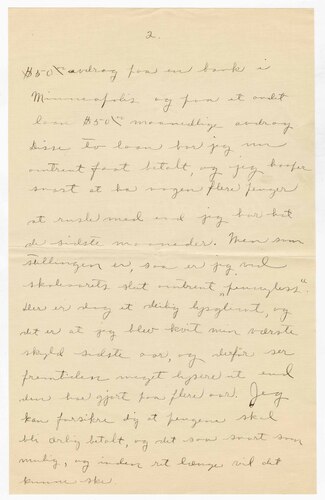 2.
$50⁰⁰ avdrag paa en bank i
Minneapolis og paa et andet
laan $50⁰⁰ maanedlige avdrag
Disse to laan har jeg nu
omtrent faat betalt, og jeg haaper
snart at ha nogen flere penger
at rusle med end jeg har hat
de sidste maaneder. Men som
stillingen er, saa er jeg ved
skoleaarets slut omtrent "pennyless".
Der er dog et deilig lyspunt, og
det er at jeg blev kvit min værste
skyld sidste aar, og derfor ser
fremtiden meget lysere ut end
den har gjort paa flere aar. Jeg
kan forsikre dig at pengene skal
bli ærlig betalt, og det saa snart som
mulig, og inden ret længe vil det
kunne ske.